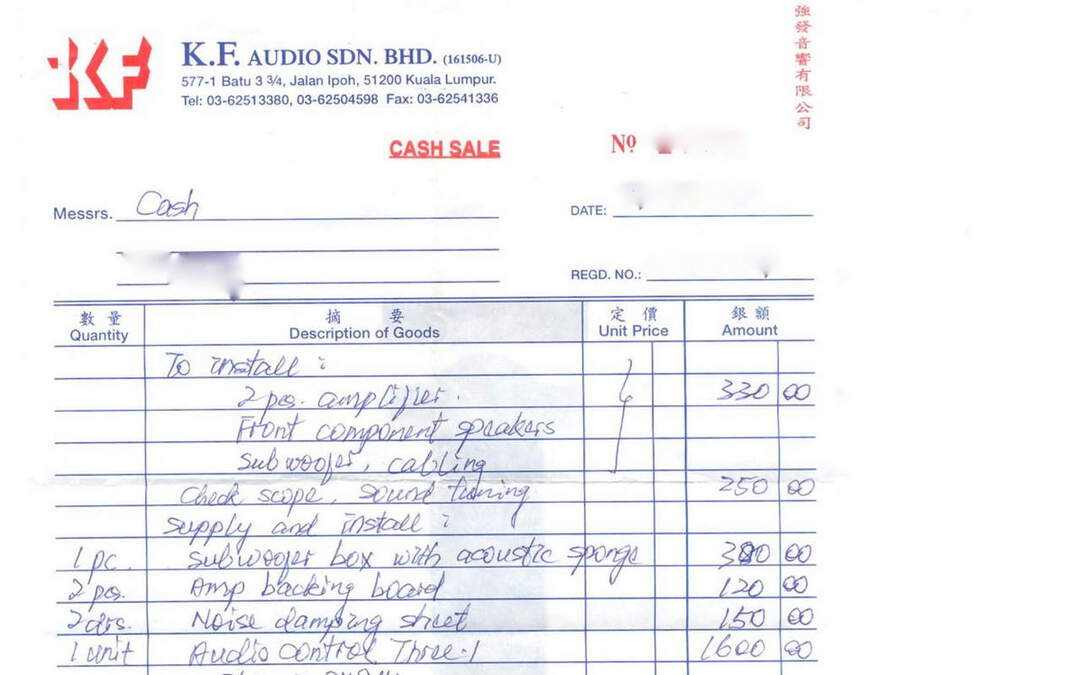 強發音響有限公司
KF
K.F. AUDIO SDN. BHD. (161506-U)
577-1 Batu 3 3/4, Jalan Ipoh, 51200 Kuala Lumpur.
Tel: 03-62513380, 03-62504598 Fax: 03-62541336
CASH SALE
Nº
Messrs. Cash
DATE:
REGD. NO.:
數量 摘要 定價 銀額
Quantity Description of Goods Unit Price Amount
To install :
2 pcs. amplifier. 330 00
Front component speakers
Subwoofer, cabling
Check scope, sound tunning 250 00
supply and install :
1 pc. Subwoofer box with acoustic sponge 00
2 pcs. Amp backing board 120 00
Noise damping sheet 150 00
1 unit Audio Control Three.1 1600 00